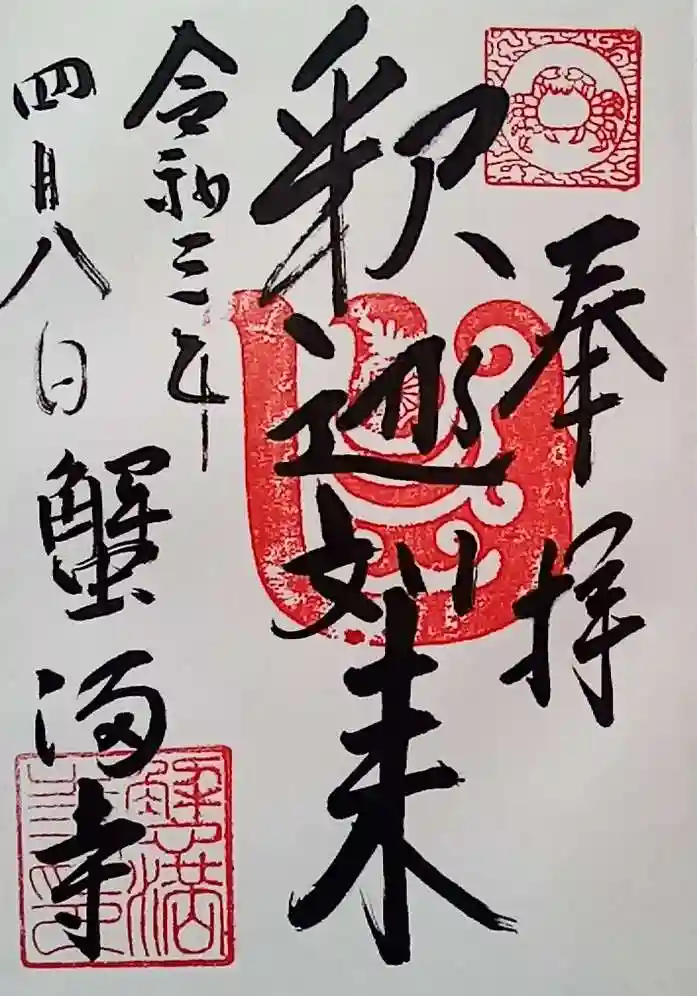 奉拝
釈迦如来
令和三年
四月八日
蟹満寺
蟹満
寺印